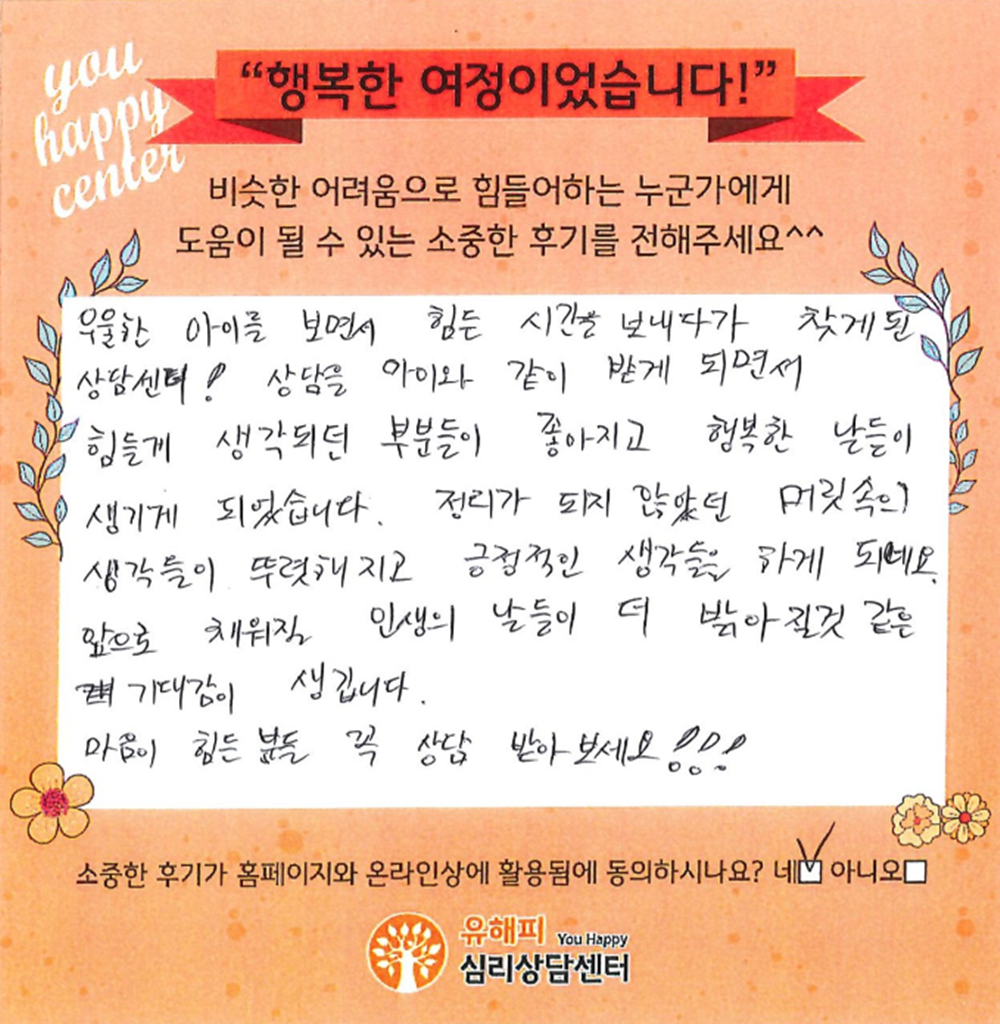 you
happy
center
“행복한 여정이었습니다!”
비슷한 어려움으로 힘들어하는 누군가에게
도움이 될 수 있는 소중한 후기를 전해주세요^^
우울한 아이를 보면서 힘든 시간을 보내다가 찾게된
상담센터! 상담을 아이와 같이 받게 되면서
힘들게 생각되던 부분들이 좋아지고 행복한 날들이
생기게 되었습니다. 정리가 되지 않았던 머릿속의
생각들이 뚜렷해지고 긍정적인 생각들을 하게 되네요.
앞으로 채워질 인생의 날들이 더 밝아질것 같은
기대감이 생깁니다.
마음이 힘든 분들 꼭 상담 받아보세요!!!
소중한 후기가 홈페이지와 온라인상에 활용됨에 동의하시나요? 네 아니오
유해피 You Happy
심리상담센터